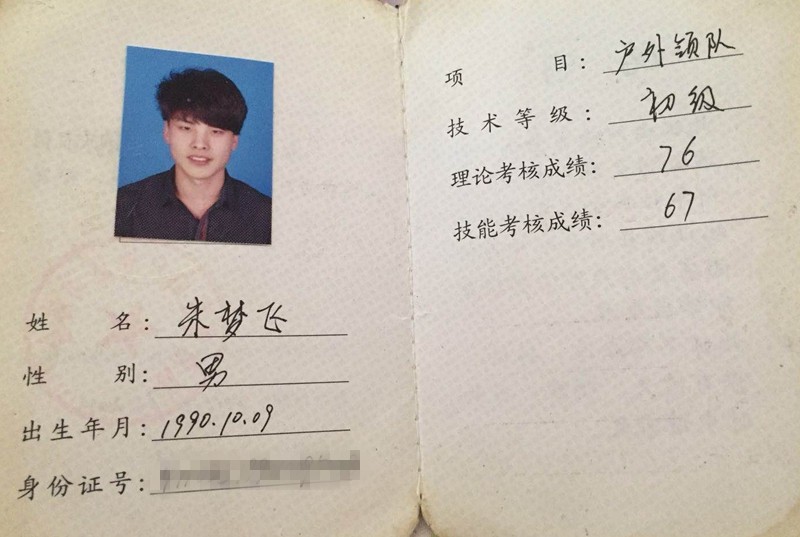 姓名：朱梦飞
性别：男
出生年月：1990.10.09
身份证号：
项目：户外领队
技术等级：初级
理论考核成绩：76
技能考核成绩：67